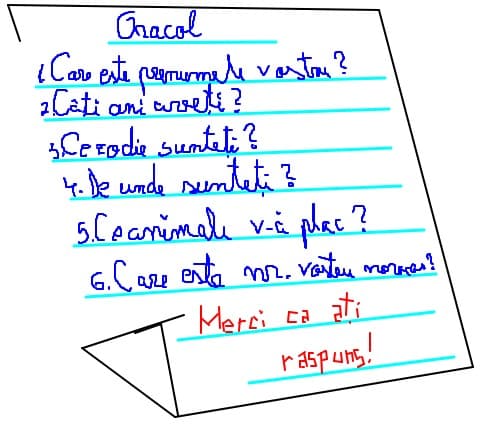 Oracol
1.Care este prenumele vostru?
2.Câți ani aveți?
3.Ce zodie sunteți?
4.De unde sunteți?
5.Ce animale v-ă plac?
6.Care esta nr. vostru norocos?
Merci ca ați
raspuns!